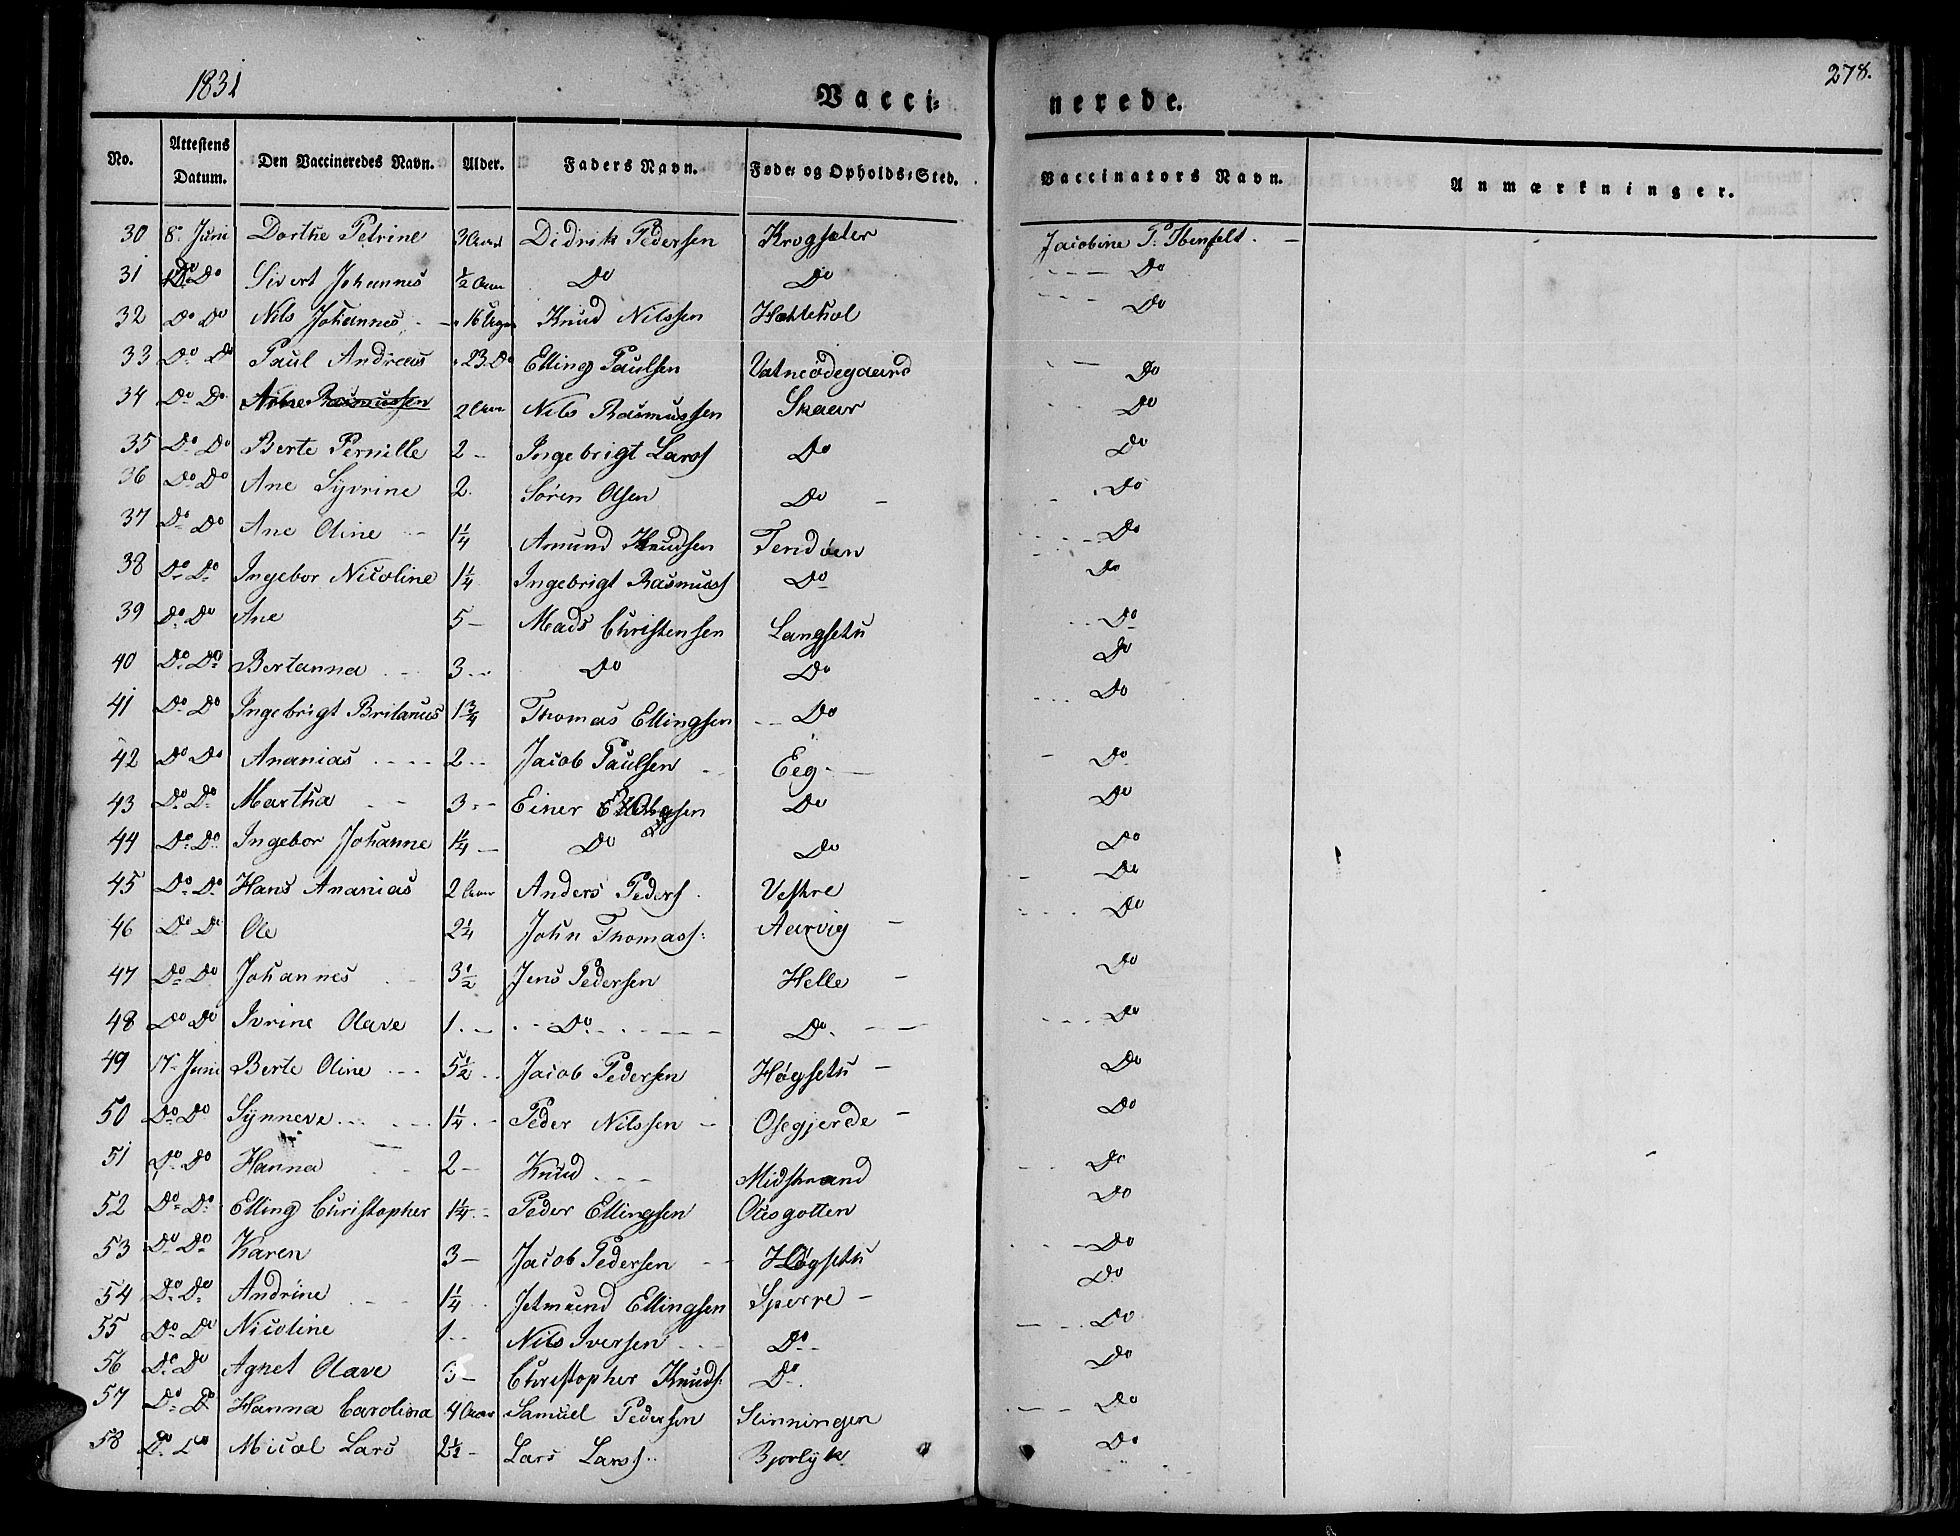 1831
278.
Vacci- nerede.
No. | Attestens Datum. | Den Vaccineredes Navn. | Alder. | Faders Navn. | Føde- og Opholds-Sted. | Vaccinators Navn. | Anmærkninger.
30 8 Juni Dorthe Petrine 3 Aar Didrik Pedersen Krogsæter Jacobine P. Ibenfelt.
31 Do Do Sivert Johannes ½ Do Do Do
32 Do Do Nils Johannes 16 Uger Knud Nilssen Hattehol Do
33 Do Do Paul Andreas 23 Do Elling Paulsen Vatneødegaard Do
34 Do Do Arne Rasmussen 2 Aar Nils Rasmussen Skaar Do
35 Do Do Berte Pernille 2 - Ingebrigt Larss Do Do
36 Do Do Ane Syvrine 2. Søren Olsen Do Do
37 Do Do Ane Oline 1¼ Amund Knudsen Tendøen Do
38 Do Do Ingebor Nicoline 1¼ Ingebrigt Rasmuss Do Do
39 Do Do Ane 5 - Mads Christensen Langsetu Do
40 Do Do Bertanna 3 - Do Do Do
41 Do Do Ingebrigt Britanus 1¾ Thomas Ellingsen Do Do
42 Do Do Ananias 2 - Jacob Paulsen Eeg Do
43 Do Do Martha 3 - Einer Do Do
44 Do Do Ingebor Johanne 1¼ - Do Do Do
45 Do Do Hans Ananias 2 Aar Anders Peders. Vestre Do
46 Do Do Ole 2¼ John Thomass: Aarvig Do
47 Do Do Johannes 3½ Jens Pedersen Helle Do
48 Do Do Ivrine Olave 1 - Do Do Do
49 17 Juni Berte Oline 5½ Jacob Pedersen Høgsetu Do
50 Do Do Synneve 1¼ - Peder Nilssen Osegjerde Do
51 Do Do Hanna 2 - Knud Midstrand Do
52 Do Do Elling Christopher 1¼ - Peder Ellingsen Do
53 Do Do Karen 3 - Jacob Pedersen Høgsetu Do
54 Do Do Andrine 1¼ Jetmund Ellingsen Sperre Do
55 Do Do Nicoline 1 Nils Iversen Do Do
56 Do Do Agnet Olave 3 - Christopher Knuds: Do Do
57 Do Do Hanna Carolina 4 Aar Samuel Pedersen Slinningen Do
58 Do Do Micael Lars 2½ - Lars Larss. Bjorlyk Do